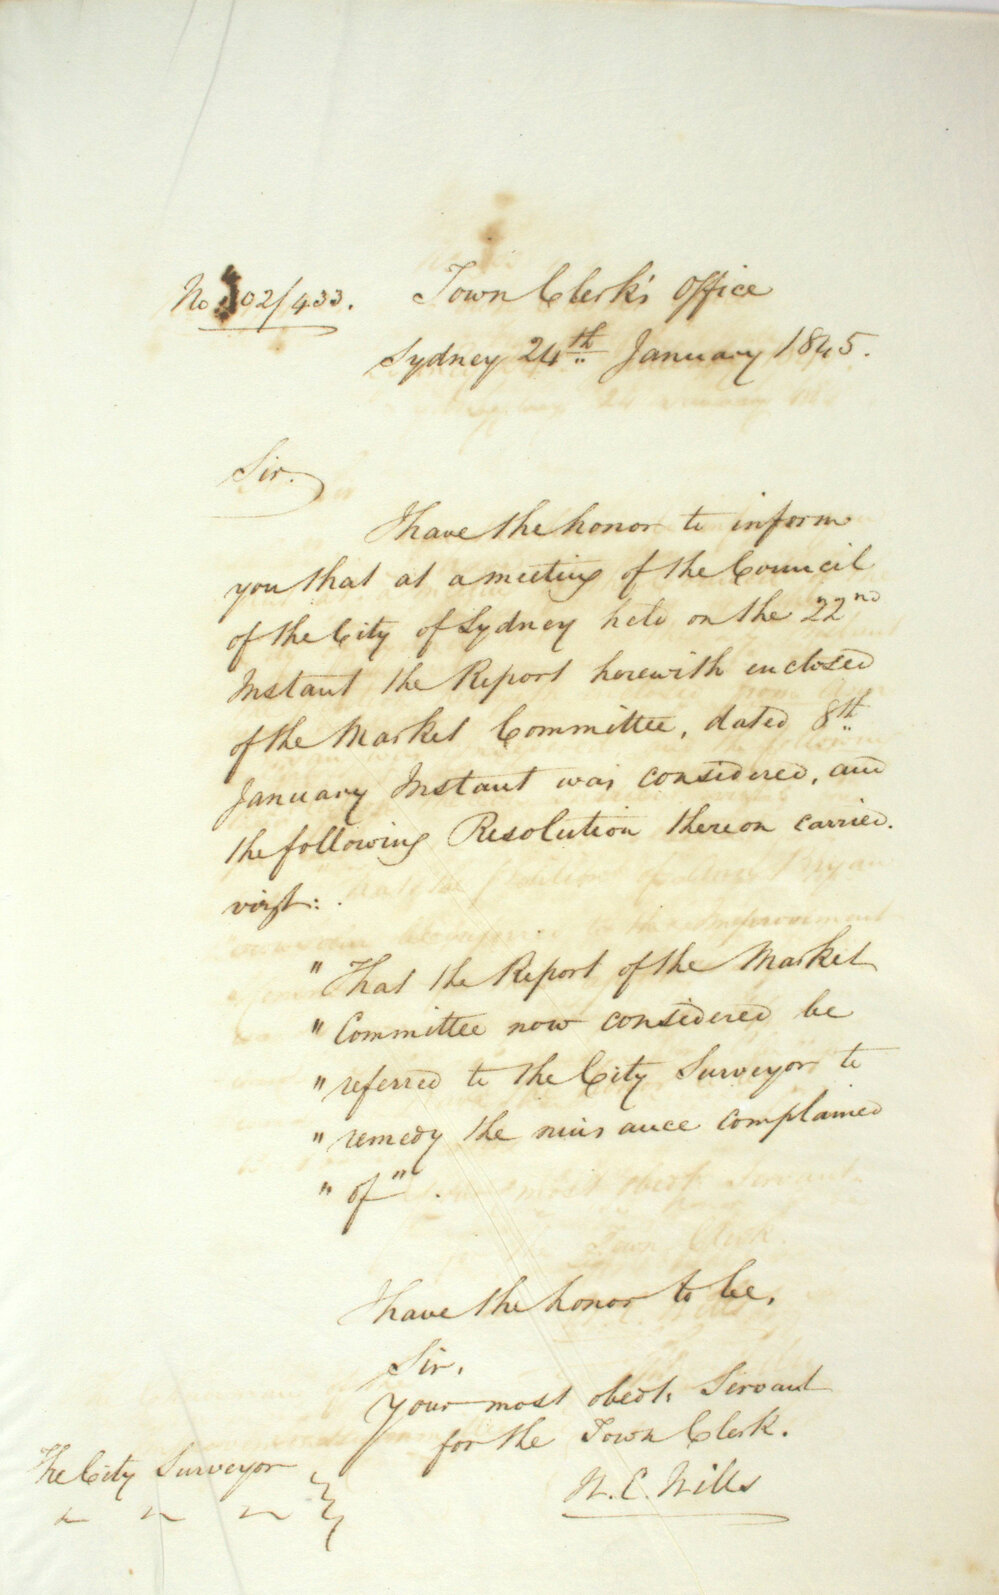 No 302/433. Town Clerk's Office
Sydney 24th January 1845.
Sir.
I have the honor to inform
you that at a meeting of the Council
of the City of Sydney held on the 22nd
Instant the Report herewith enclosed
of the Market Committee, dated 8th
January Instant was considered, and
the following Resolution thereon carried.
vizt:.
"That the Report of the Market
"Committee now considered be
"referred to the City Surveyor to
"remedy the nuisance complained
"of".
I have the honor to be,
Sir,
Your most obedt. Servant
for the Town Clerk.
W. C. Wills
The City Surveyor